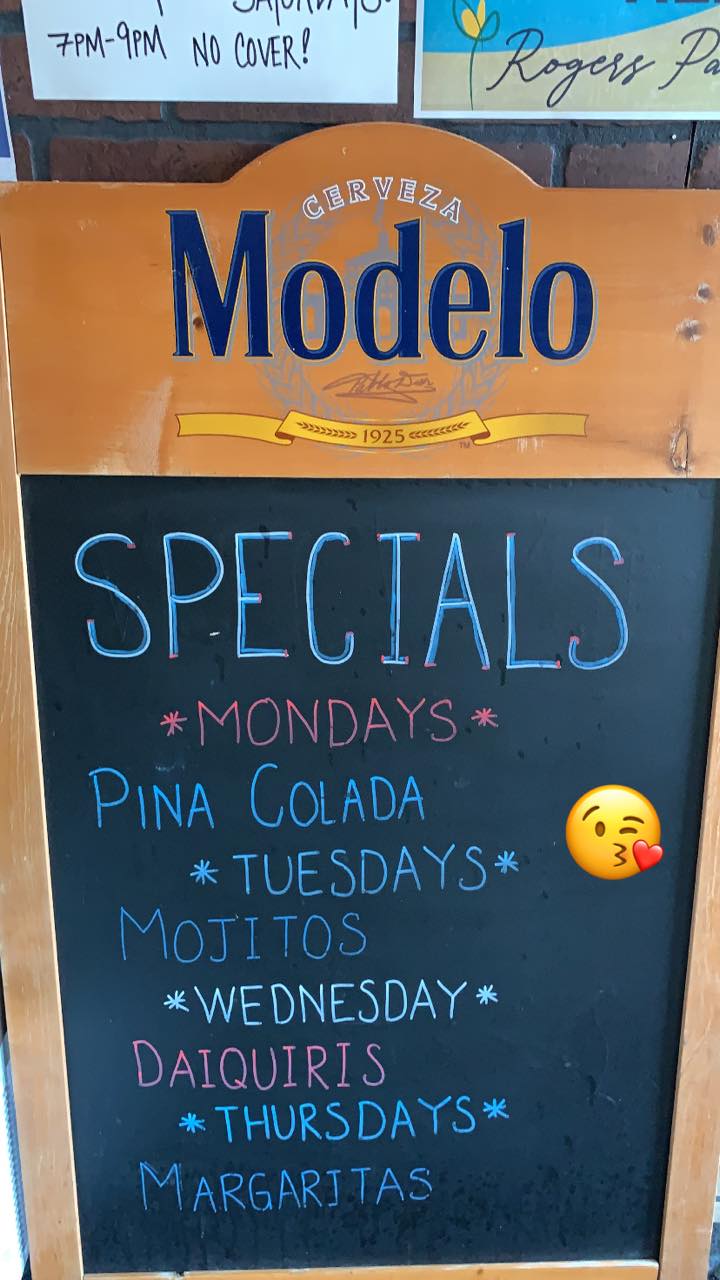 SATURDAYS
7PM-9PM NO COVER!
Rogers
CERVEZA
Modelo
1925
TM
SPECIALS
*MONDAYS*
PINA COLADA
*TUESDAYS*
MOJITOS
*WEDNESDAY*
DAIQUIRIS
*THURSDAYS*
MARGARITAS